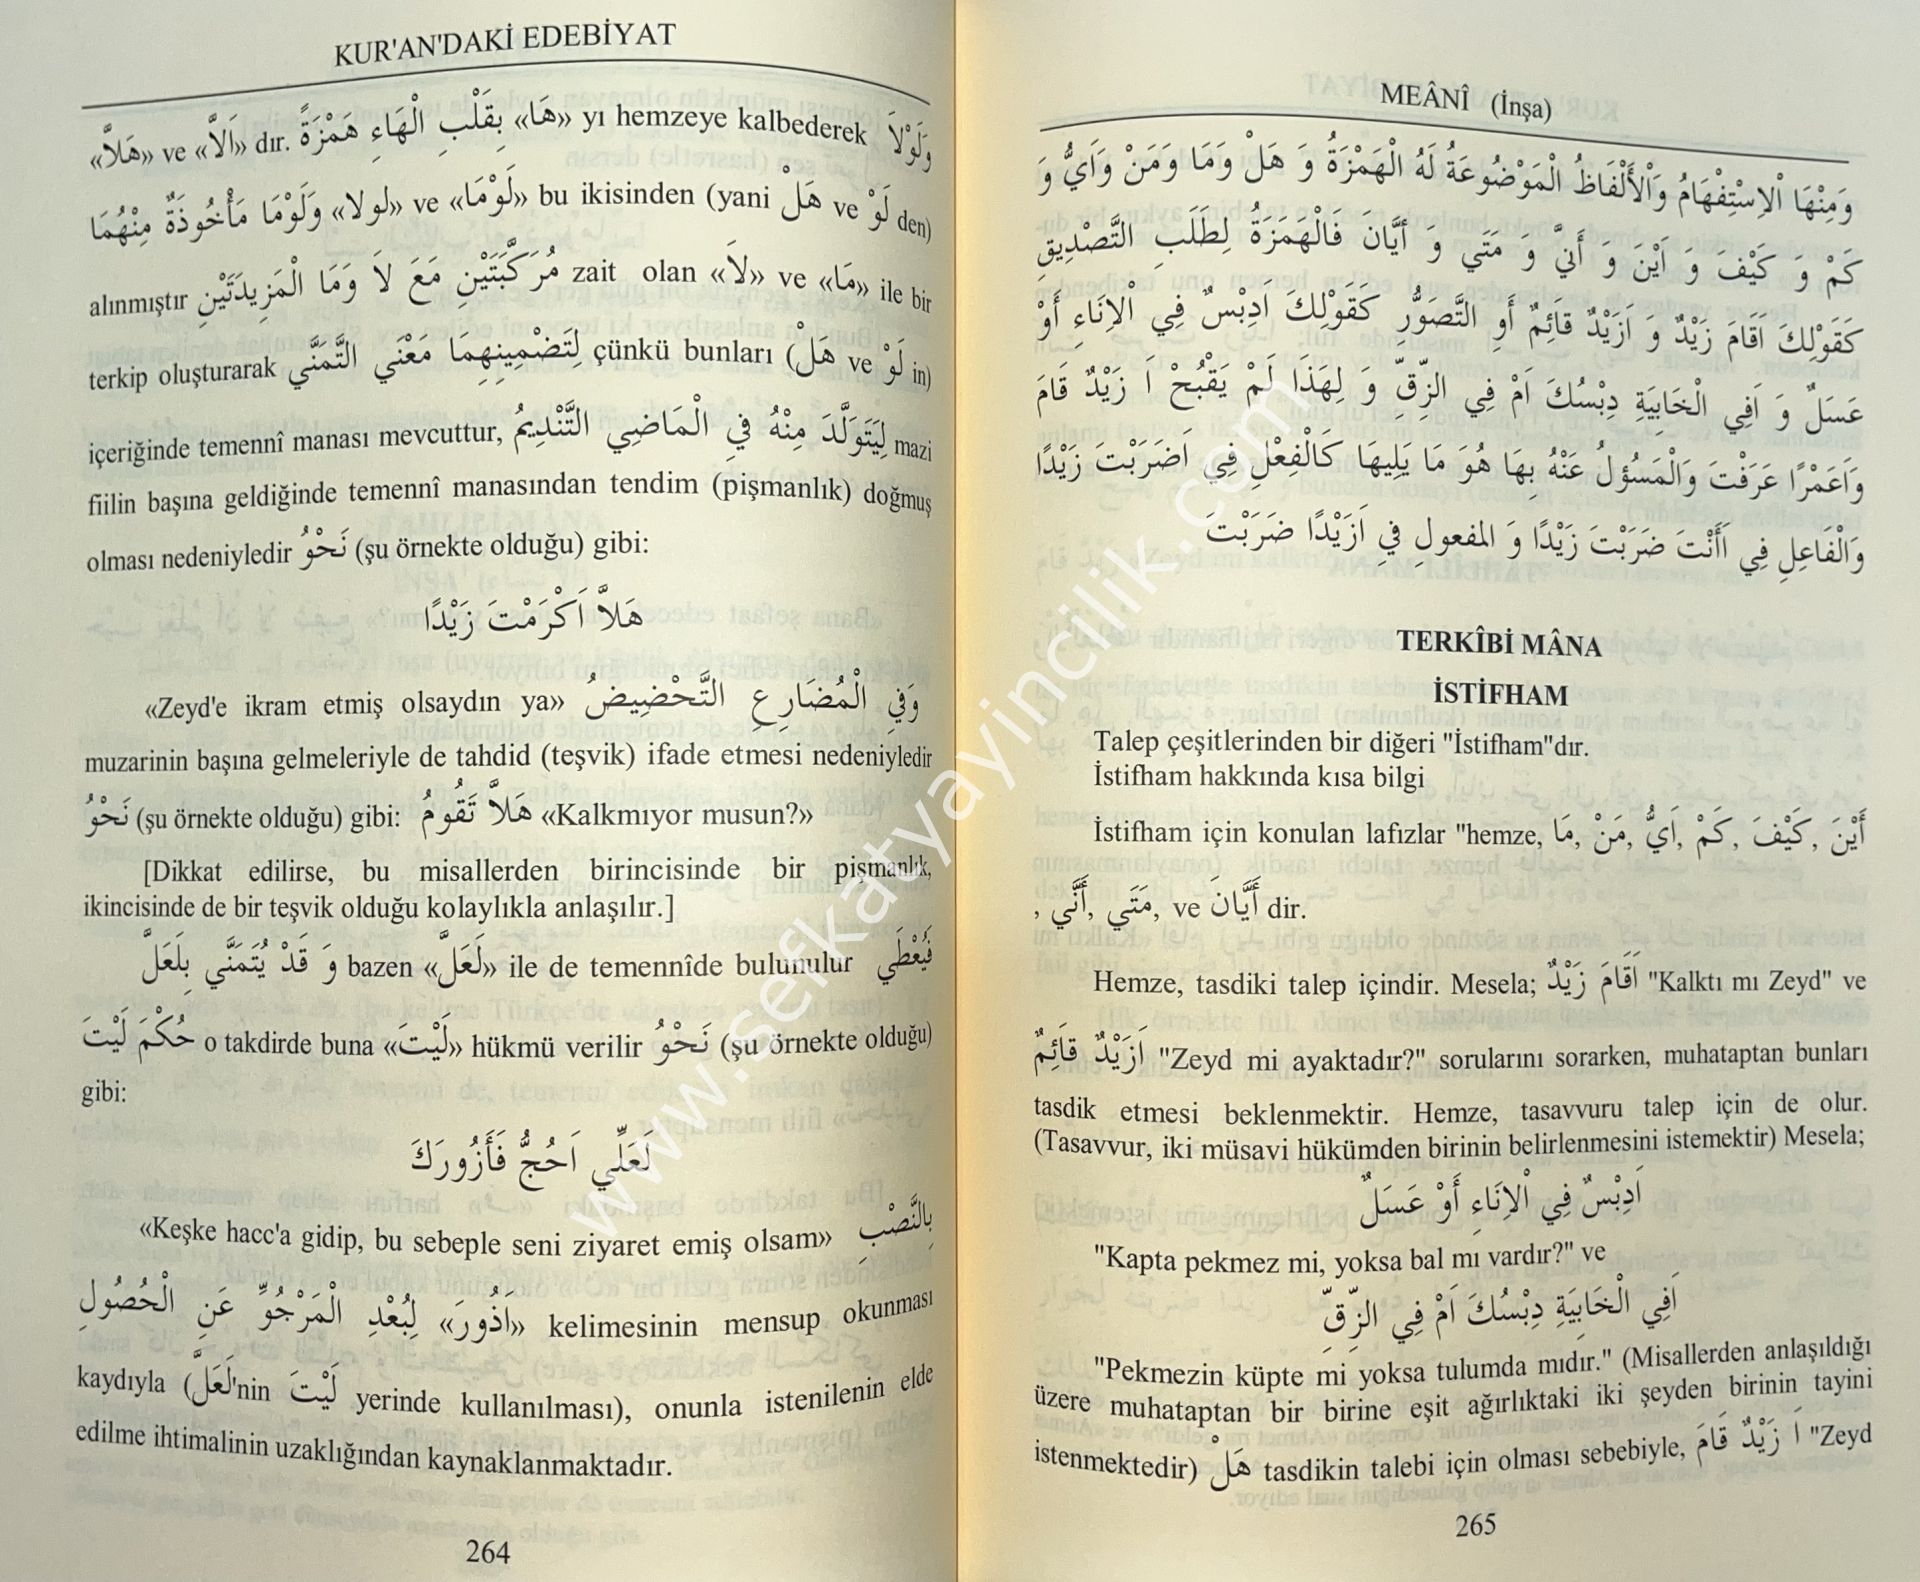 KUR'AN'DAKİ EDEBİYAT
«هَلاَّ» ve «اَلاَّ» dır. هَا» بِقَلْبِ الْهَاءِ هَمْزَةً» yı hemzeye kalbederek وَلَوْلاَ
وَلَوْمَا مَأْخُوذَةٌ مِنْهُمَا «لولا» ve «لَوْمَا» bu ikisinden (yani هَلْ ve لَوْ den)
alınmıştır مُرَكَّبَتَيْنِ مَعَ لاَ وَمَا الْمَزِيدَتَيْنِ zait olan «لاَ» ve «مَا» ile bir
terkip oluşturarak لِتَضْمِينِهِمَا مَعْنَي التَّمَنَّي çünkü bunları (هَلْ ve لَوْ in)
içeriğinde temennî manası mevcuttur, لِيَتَوَلَّدَ مِنْهُ فيِ الْمَاضِي التَّنْدِيمُ mazi
fiilin başına geldiğinde temennî manasından tendim (pişmanlık) doğmuş
olması nedeniyledir نَحْوُ (şu örnekte olduğu) gibi:
هَلاَّ اَكْرَمْتَ زَيْدًا
«Zeyd'e ikram etmiş olsaydın ya» وَفيِ الْمُضَارِعِ التَّحْضِيضُ
muzarinin başına gelmeleriyle de tahdid (teşvik) ifade etmesi nedeniyledir
نَحْوُ (şu örnekte olduğu) gibi: هَلاَّ تَقُومُ «Kalkmıyor musun?»
[Dikkat edilirse, bu misallerden birincisinde bir pişmanlık,
ikincisinde de bir teşvik olduğu kolaylıkla anlaşılır.]
وَ قَدْ يُتَمَنَّي بِلَعَلَّ bazen «لَعَلَّ» ile de temennîde bulunulur فَيُعْطَي
حُكْمَ لَيْتَ o takdirde buna «لَيْتَ» hükmü verilir نَحْوُ (şu örnekte olduğu)
gibi:
لَعَلِّي اَحُجُّ فَأَزُورَكَ
«Keşke hacc'a gidip, bu sebeple seni ziyaret emiş olsam» بِالنَّصْبِ
لِبُعْدِ الْمَرْجُوِّ عَنِ الْحُصُولِ «اَذُورَ» kelimesinin mensup okunması
kaydıyla (لَعَلَّ'nin لَيْتَ yerinde kullanılması), onunla istenilenin elde
edilme ihtimalinin uzaklığından kaynaklanmaktadır.
264
MEÂNÎ (İnşa)
وَمِنْهَا اْلاِسْتِفْهَامُ وَاْلأَلْفَاظُ الْمَوْضُوعَةُ لَهُ الْهَمْزَةُ وَ هَلْ وَمَا وَمَنْ وَاَيُّ وَ
كَمْ وَ كَيْفَ وَ اَيْنَ وَ اَنيَّ وَ مَتَي وَ أيَّانَ فَالْهَمَزَةُ لِطَلَبِ التَّصْدِيقِ
كَقَوْلِكَ اَقَامَ زَيْدٌ وَ اَزَيْدٌ قَائِمٌ أَوِ التَّصَوُّرِ كَقَوْلِكَ اَدِبْسٌ فِي اْلاِنَاءِ أَوْ
عَسَلٌ وَ اَفِي الْخَابِيَةِ دِبْسُكَ اَمْ فِي الزِّقِّ وَ لِهَذَا لَمْ يَقْبُحْ اَ زَيْدٌ قَامَ
وَاَعَمْرًا عَرَفْتَ وَالْمَسؤُلُ عَنْهُ بِهَا هُوَ مَا يَلِيهَا كَالْفِعْلِ فِي اَضَرَبْتَ زَيْدًا
وَالْفَاعِلِ فِي اَأَنْتَ ضَرَبْتَ زَيْدًا وَ المفعولِ فيِ اَزَيْدًا ضَرَبْتَ
TERKÎBİ MÂNA
İSTİFHAM
Talep çeşitlerinden bir diğeri "İstifham"dır.
İstifham hakkında kısa bilgi
İstifham için konulan lafızlar "hemze, مَا, مَنْ, اَيُّ, كَمْ, كَيْفَ, أَيْنَ
, أَنَّي, مَتَي, ve أَيَّانَ dir.
Hemze, tasdiki talep içindir. Mesela; اَقَامَ زَيْدٌ "Kalktı mı Zeyd" ve
اَزَيْدٌ قَائِمٌ "Zeyd mi ayaktadır?" sorularını sorarken, muhataptan bunları
tasdik etmesi beklenmektir. Hemze, tasavvuru talep için de olur.
(Tasavvur, iki müsavi hükümden birinin belirlenmesini istemektir) Mesela;
اَدِبْسٌ فِي اْلاِنَاءِ أَوْ عَسَلٌ
"Kapta pekmez mi, yoksa bal mı vardır?" ve
اَفِي الْخَابِيَةِ دِبْسُكَ اَمْ فِي الزِّقِّ
"Pekmezin küpte mi yoksa tulumda mıdır." (Misallerden anlaşıldığı
üzere muhataptan bir birine eşit ağırlıktaki iki şeyden birinin tayini
istenmektedir) هَلْ tasdikin talebi için olması sebebiyle, اَ زَيْدٌ قَامَ "Zeyd
265
www.sefkatyayincilik.com